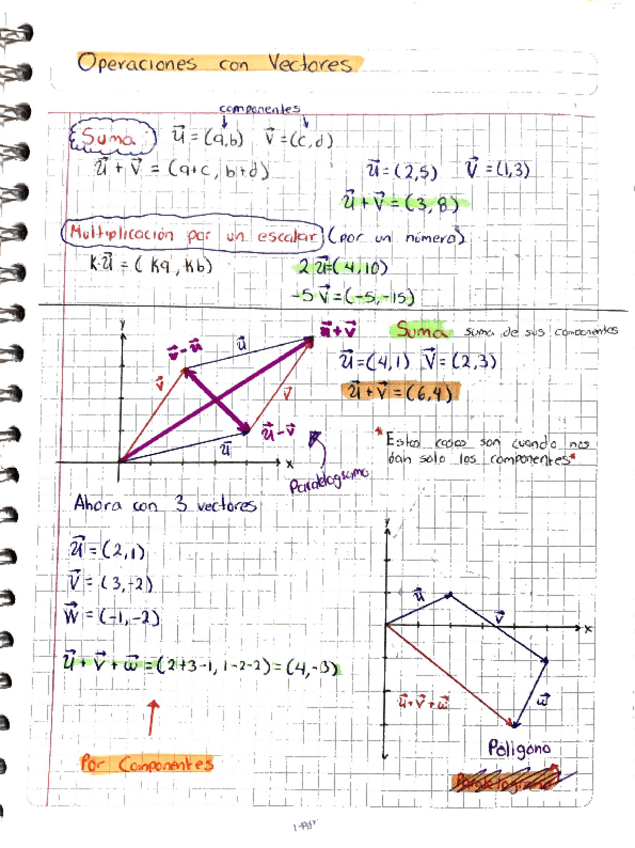 Operaciones con Vectores
componentes
Suma u⃗ = (a,b) v⃗ = (c,d)
u⃗ + v⃗ = (a+c, b+d)
u⃗ = (2,5) v⃗ = (1,3)
u⃗ + v⃗ = (3,8)
Multiplicación por un escalar (por un número)
k·u⃗ = (ka, kb)
2u⃗ = (4,10)
-5v⃗ = (-5,-15)
y
u⃗+v⃗
v⃗-u⃗
u⃗
v⃗
v⃗
u⃗-v⃗
u⃗
x
Paralelogramo
Suma suma de sus componentes
u⃗ = (4,1) v⃗ = (2,3)
u⃗ + v⃗ = (6,4)
*Estos casos son cuando nos
dan solo los componentes*
Ahora con 3 vectores
u⃗ = (2,1)
v⃗ = (3,-2)
w⃗ = (-1,-2)
u⃗ + v⃗ + w⃗ = (2+3-1, 1-2-2) = (4,-3)
Por Componentes
y
u⃗
v⃗
x
w⃗
u⃗+v⃗+w⃗
Polígono